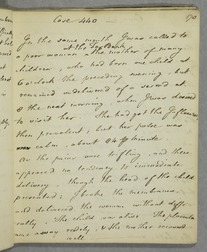 Case 440
In the same month I was called to
at the
a poor woman, the mother of many
children, who had born one child at
the preceding evening, but
remained undelivered of a second at
the next morning, when I was desired
to visit her. She had got the Influenza
then prevalent; but her pulse was
calm, about 94 in a minute.
As the pains were trifling, and there
appeared no tendency to immediate
delivery, though the head of the child
presented, I broke the membranes,
and delivered the woman without diffi-
culty. The child was alive. The placenta
was away readily, & the mother recovered
well.